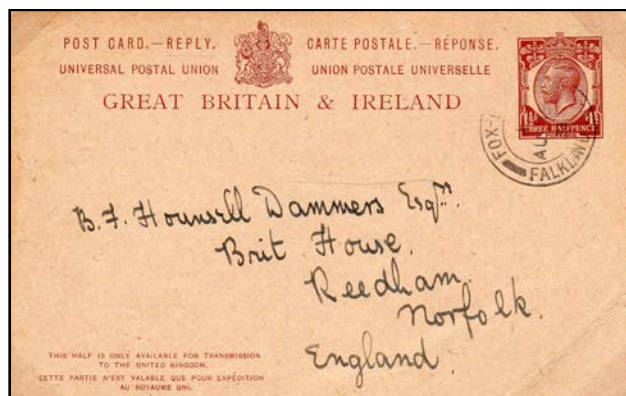 POST CARD.—REPLY. CARTE POSTALE.—RÉPONSE.
UNIVERSAL POSTAL UNION UNION POSTALE UNIVERSELLE
GREAT BRITAIN & IRELAND
1½ 1½
THREE HALFPENCE
FOX-
FALKLAN
B. F. Hounsell Dammers Esqre.
Brit House.
Reedham.
Norfolk.
England.
THIS HALF IS ONLY AVAILABLE FOR TRANSMISSION
TO THE UNITED KINGDOM.
CETTE PARTIE N'EST VALABLE QUE POUR EXPÉDITION
AU ROYAUME UNI.